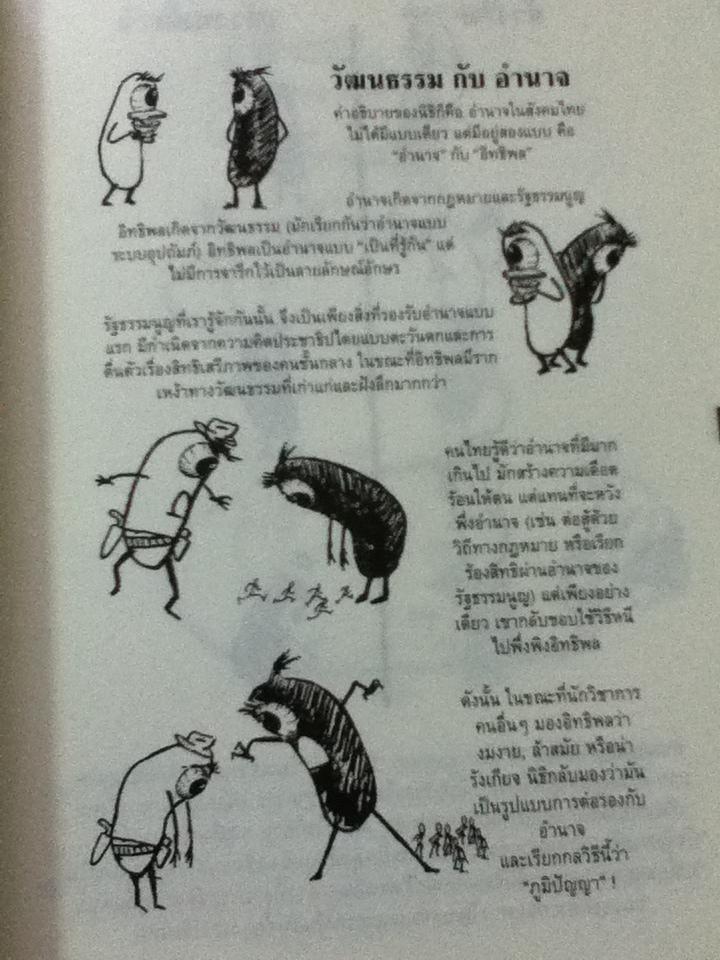 วัฒนธรรม กับ อำนาจ
คำอธิบายของนิธิก็คือ อำนาจในสังคมไทย
ไม่ได้มีแบบเดียว แต่มีอยู่สองแบบ คือ
"อำนาจ" กับ "อิทธิพล"
อำนาจเกิดจากกฎหมายและรัฐธรรมนูญ
อิทธิพลเกิดจากวัฒนธรรม (มักเรียกกันว่าอำนาจแบบ
ระบบอุปถัมภ์) อิทธิพลเป็นอำนาจแบบ "เป็นที่รู้กัน" แต่
ไม่มีการจารึกไว้เป็นลายลักษณ์อักษร
รัฐธรรมนูญที่เรารู้จักกันนั้น จึงเป็นเพียงสิ่งที่รองรับอำนาจแบบ
แรก มีกำเนิดจากความคิดประชาธิปไตยแบบตะวันตกและการ
ตื่นตัวเรื่องสิทธิเสรีภาพของคนชั้นกลาง ในขณะที่อิทธิพลมีราก
เหง้าทางวัฒนธรรมที่เก่าแก่และฝังลึกมากกว่า
คนไทยรู้ดีว่าอำนาจที่มีมาก
เกินไป มักสร้างความเดือด
ร้อนให้ตน แต่แทนที่จะหวัง
พึ่งอำนาจ (เช่น ต่อสู้ด้วย
วิถีทางกฎหมาย หรือเรียก
ร้องสิทธิผ่านอำนาจของ
รัฐธรรมนูญ) แต่เพียงอย่าง
เดียว เขากลับชอบใช้วิธีหนี
ไปพึ่งพิงอิทธิพล
ดังนั้น ในขณะที่นักวิชาการ
คนอื่นๆ มองอิทธิพลว่า
งมงาย, ล้าสมัย หรือน่า
รังเกียจ นิธิกลับมองว่ามัน
เป็นรูปแบบการต่อรองกับ
อำนาจ
และเรียกกลวิธีนี้ว่า
"ภูมิปัญญา" !